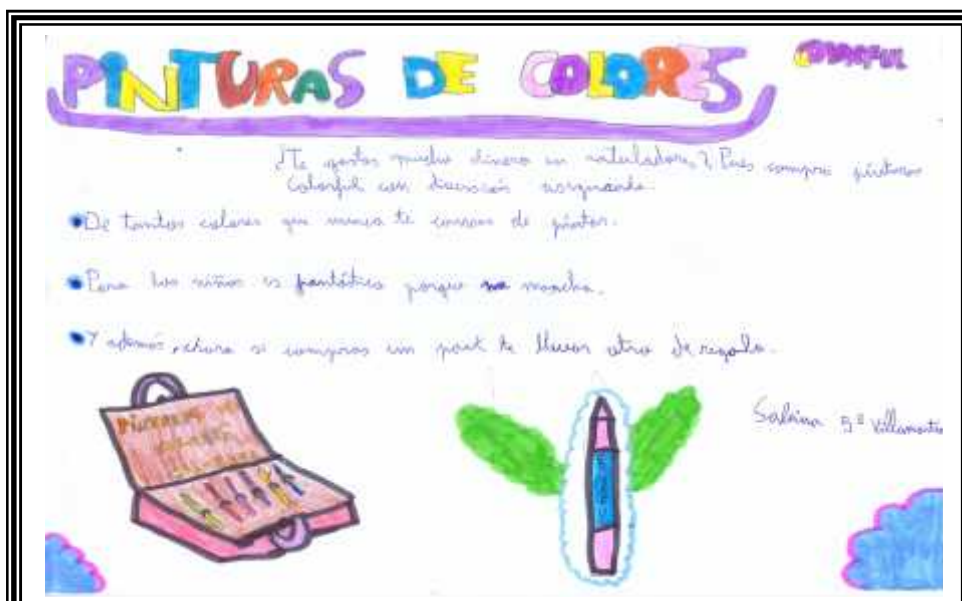 PINTURAS DE COLORES
COLORFUL
¿Te gastas mucho dinero en rotuladores? Pues compra pinturas
Colorful con
De tantos colores que nunca te cansas de pintar.
Para los niños es fantástico porque no mancha.
Y además, ahora si compras un pack te llevas otro de regalo.
Sabina 5º Villamartín
PINTURAS DE
COLORES